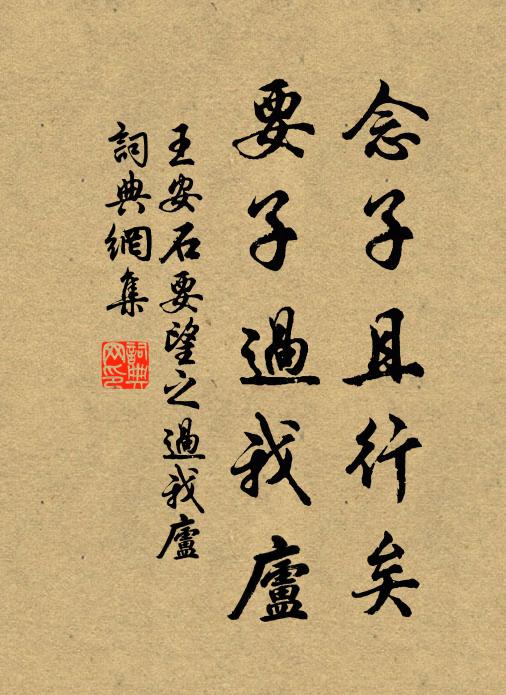 念子且行矣
要子過我廬
王安石要望之過我廬
詞典網集
詞典
网印